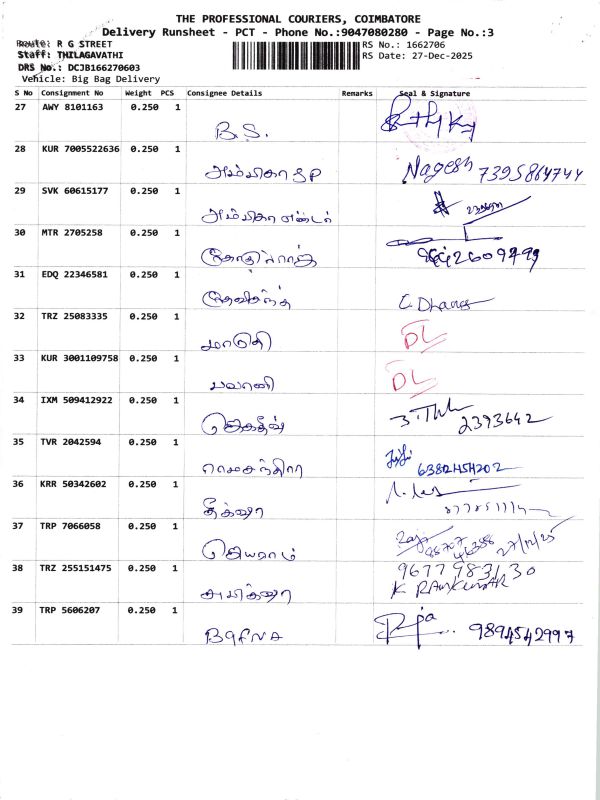 THE PROFESSIONAL COURIERS, COIMBATORE
Delivery Runsheet - PCT - Phone No.:9047080280 - Page No.:3
Route: R G STREET
RS No.: 1662706
Staff: THILAGAVATHI
RS Date: 27-Dec-2025
DRS No.: DCJB166270603
Vehicle: Big Bag Delivery
S No Consignment No Weight PCS Consignee Details Remarks Seal & Signature
27 AWY 8101163 0.250 1
B.S.
28 KUR 7005522636 0.250 1
அம்பிகா SP Nagesh 7395864744
29 SVK 60615177 0.250 1
அம்பிகா
30 MTR 2705258 0.250 1
31 EDQ 22346581 0.250 1
C. Dhana
32 TRZ 25083335 0.250 1
மாருதி DL
33 KUR 3001109758 0.250 1
பவானி DL
34 IXM 509412922 0.250 1
ஜெகதீஷ் 2393642
35 TVR 2042594 0.250 1
ராமசந்திரா
36 KRR 50342602 0.250 1
தீக்ஷா
37 TRP 7066058 0.250 1
ஜெயராம் 27/12/25
38 TRZ 255151475 0.250 1
9677983130
K RAMKUMAR
39 TRP 5606207 0.250 1
9894542997